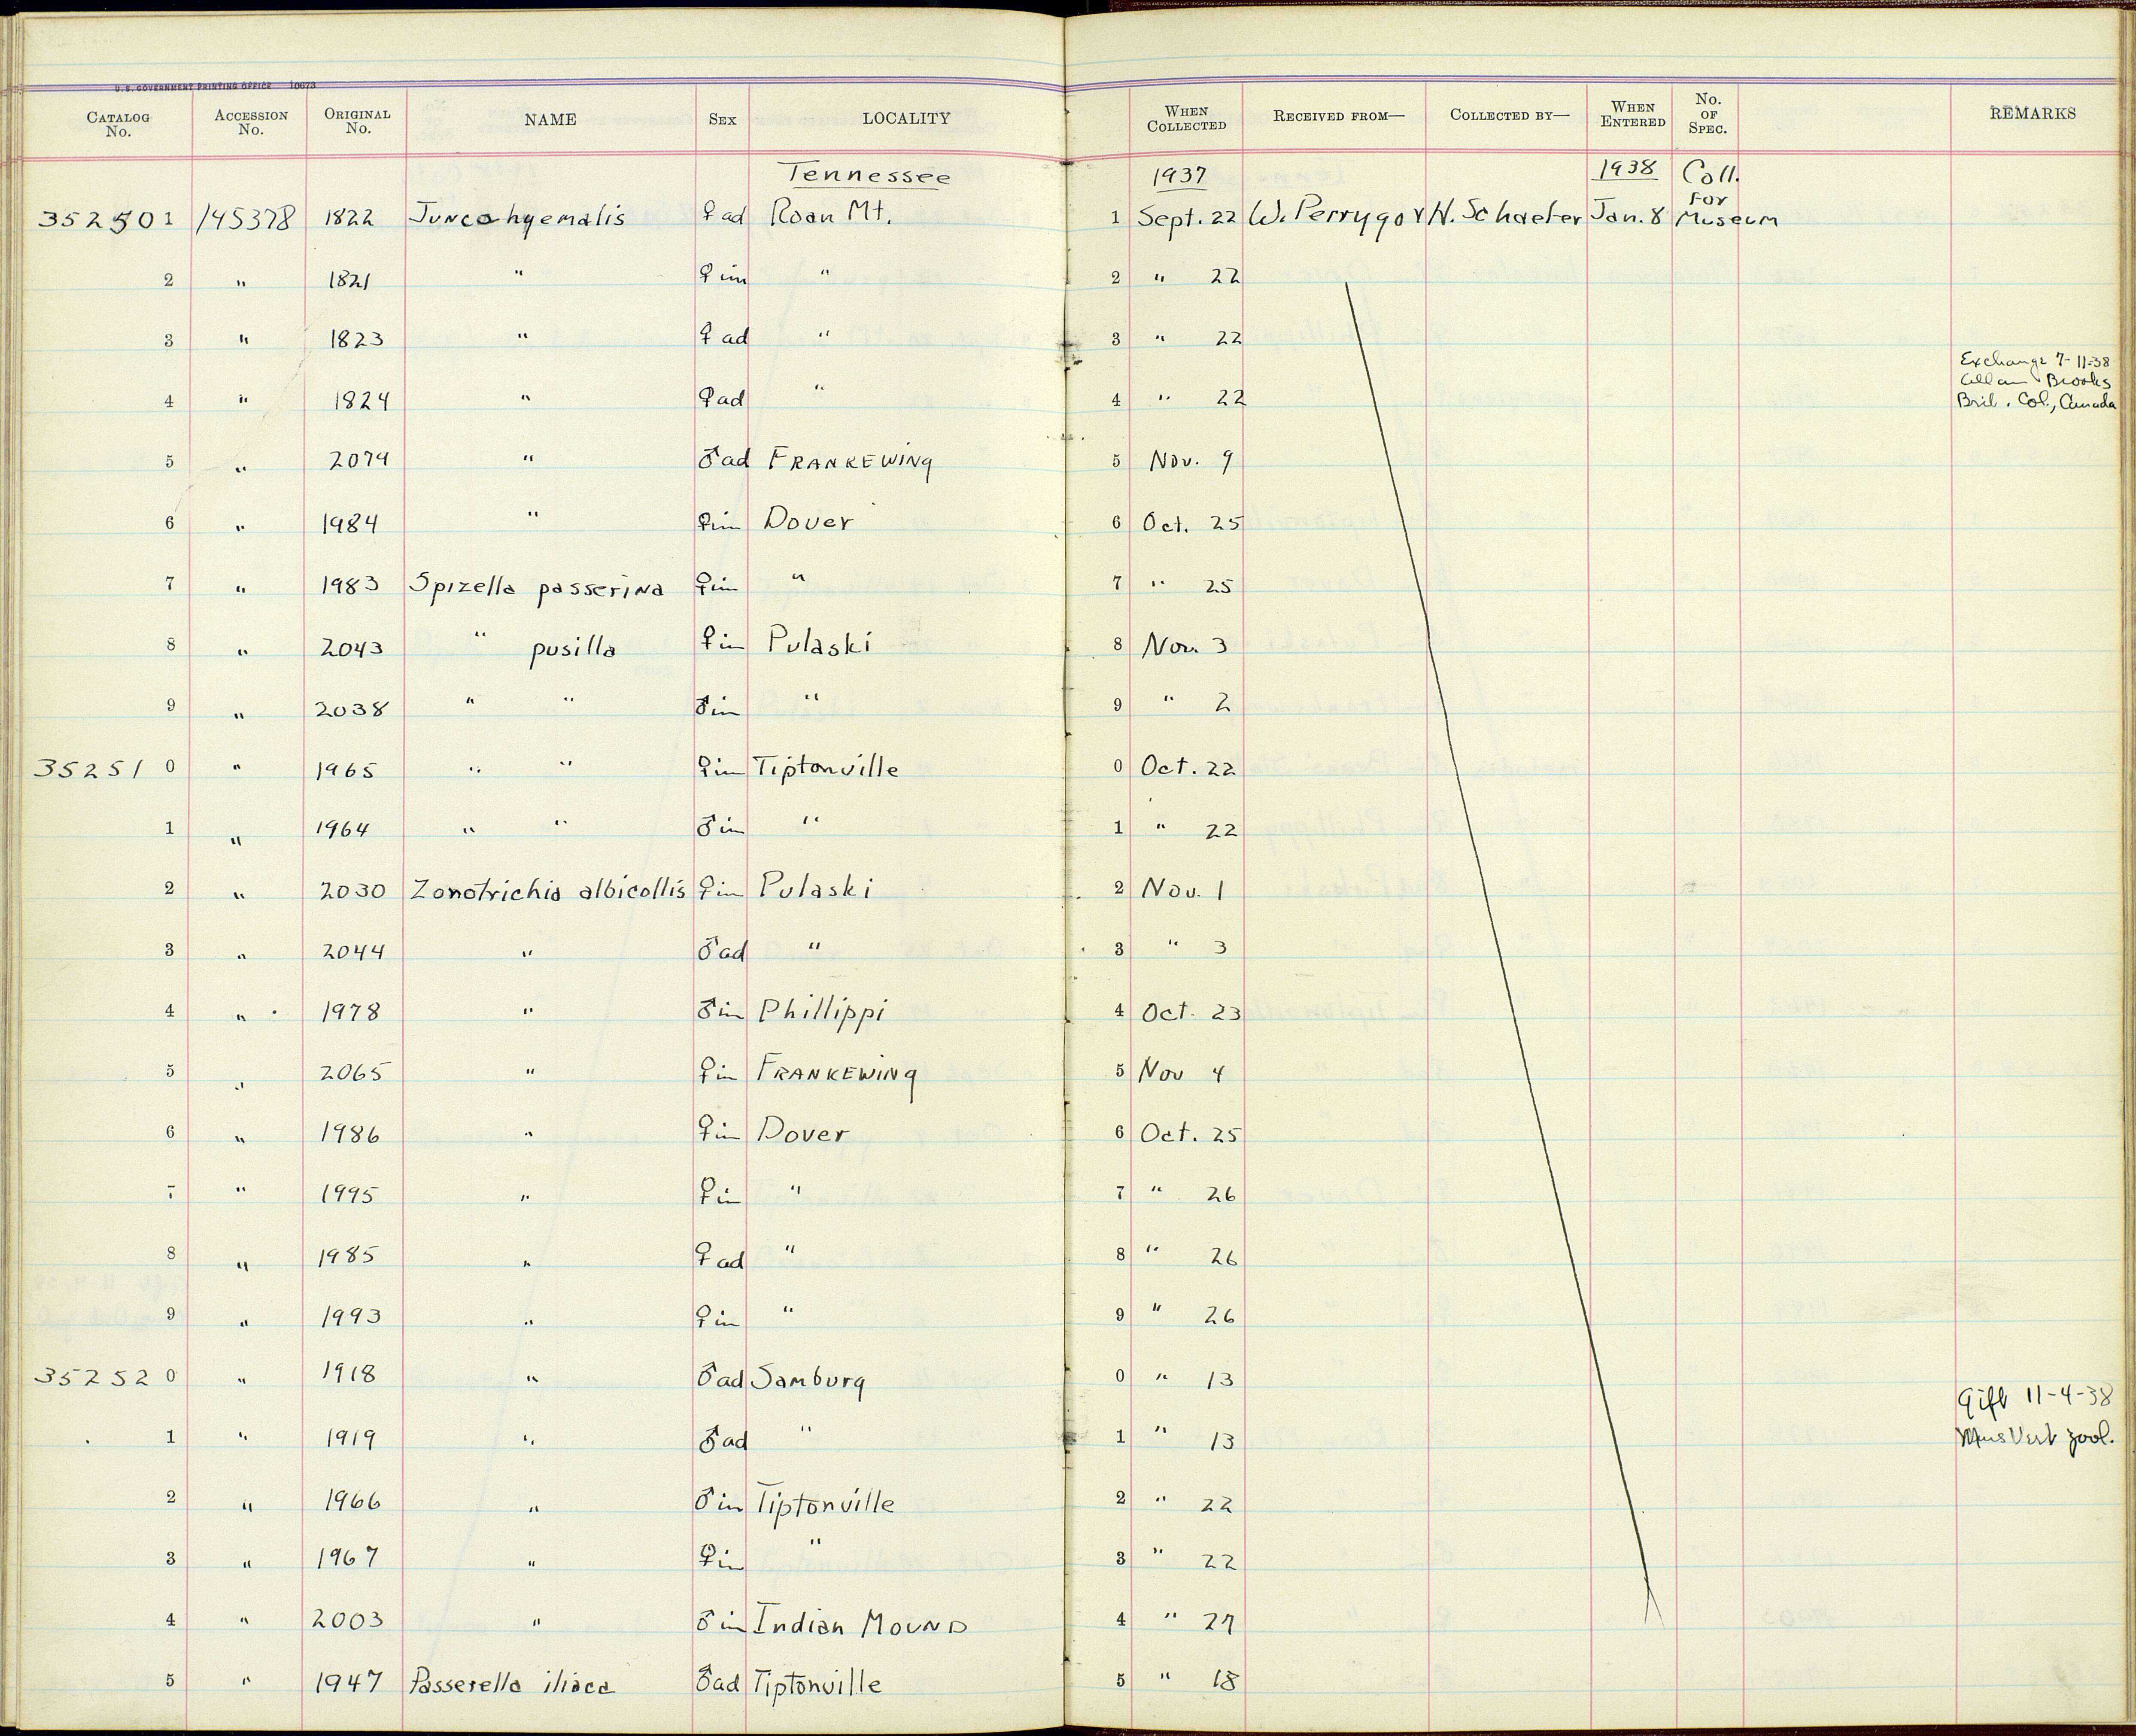 U.S. GOVERNMENT PRINTING OFFICE 10673
CATALOG No. ACCESSION No. ORIGINAL No. NAME SEX LOCALITY WHEN COLLECTED RECEIVED FROM— COLLECTED BY— WHEN ENTERED No. OF SPEC. REMARKS
Tennessee 1937 1938 Coll. For
352501 145378 1822 Junco hyemalis ♀ ad Roan Mt. 1 Sept. 22 W. Perrygo & H. Schaefer Jan. 8 Museum
2 " 1821 " ♀ im " 2 " 22
3 " 1823 " ♀ ad " 3 " 22
Exchange 7-11-38
Allan Brooks
4 " 1824 " ♀ ad " 4 " 22 Brit. Col., Canada
5 " 2079 " ♂ ad FRANKEWING 5 Nov. 9
6 " 1984 " ♀ im Dover 6 Oct. 25
7 " 1983 Spizella passerina ♀ im " 7 " 25
8 " 2043 " pusilla ♀ im Pulaski 8 Nov. 3
9 " 2038 " " ♂ im " 9 " 2
352510 " 1965 " " ♀ im Tiptonville 0 Oct. 22
1 " 1964 " " ♂ im " 1 " 22
2 " 2030 Zonotrichia albicollis ♀ im Pulaski 2 Nov. 1
3 " 2044 " ♂ ad " 3 " 3
4 " 1978 " ♂ im Phillippi 4 Oct. 23
5 " 2065 " ♀ im FRANKEWING 5 Nov 4
6 " 1986 " ♀ im Dover 6 Oct. 25
7 " 1995 " ♀ im " 7 " 26
8 " 1985 " ♀ ad " 8 " 26
9 " 1993 " ♀ im " 9 " 26
352520 " 1918 " ♂ ad Samburg 0 " 13
Gift 11-4-38
1 " 1919 " ♂ ad " 1 " 13 Mus Vert Zool.
2 " 1966 " ♂ im Tiptonville 2 " 22
3 " 1967 " ♀ im " 3 " 22
4 " 2003 " ♂ im Indian MOUND 4 " 27
5 " 1947 Passerella iliaca ♂ ad Tiptonville 5 " 18